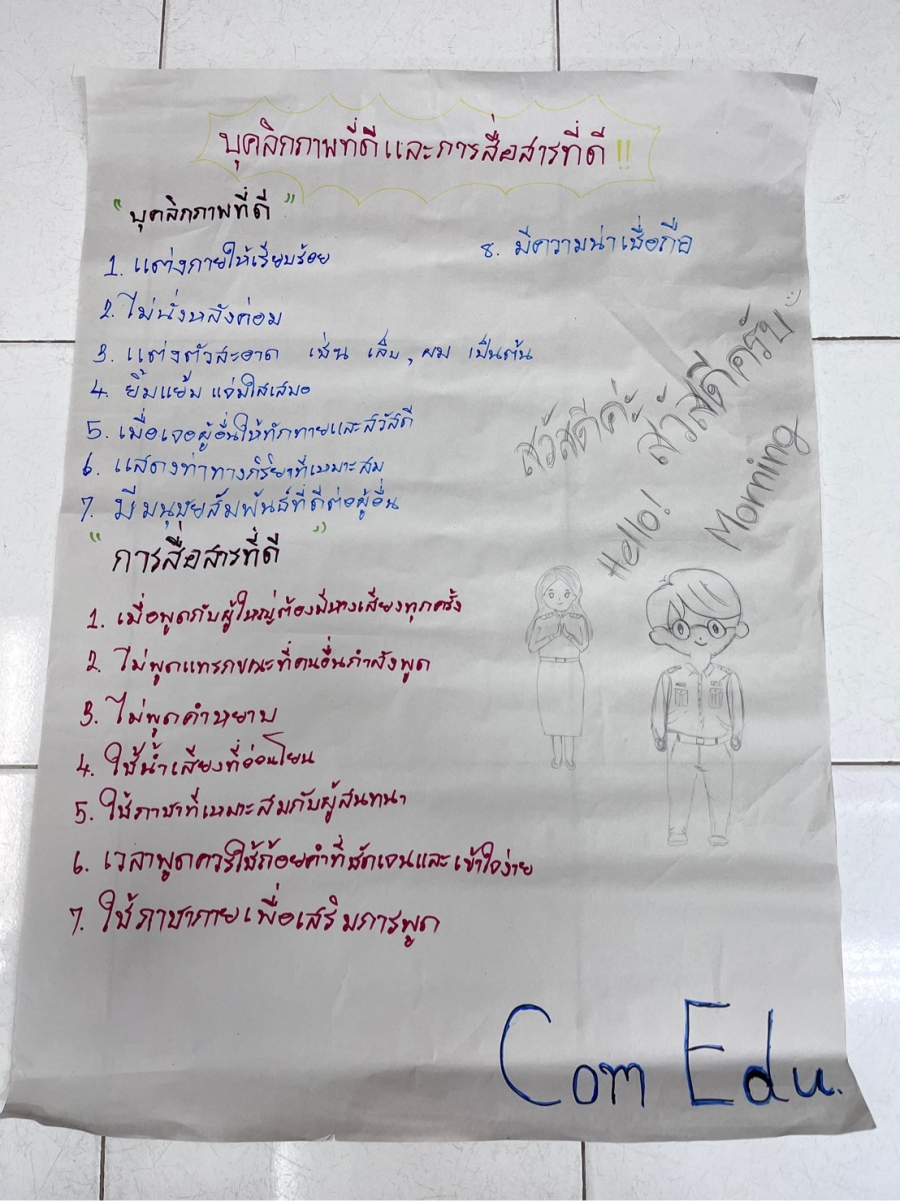 บุคลิกภาพที่ดีและการสื่อสารที่ดี!!
"บุคลิกภาพที่ดี"
1. แต่งกายให้เรียบร้อย
2. ไม่นั่งหลังค่อม
3. แต่งตัวสะอาด เช่น เล็บ, ผม เป็นต้น
4. ยิ้มแย้ม แจ่มใสเสมอ
5. เมื่อเจอผู้อื่นให้ทักทายและสวัสดี
6. แสดงท่าทางกิริยาที่เหมาะสม
7. มีมนุษยสัมพันธ์ที่ดีต่อผู้อื่น
8. มีความน่าเชื่อถือ
"การสื่อสารที่ดี"
1. เมื่อพูดกับผู้ใหญ่ต้องมีหางเสียงทุกครั้ง
2. ไม่พูดแทรกขณะที่คนอื่นกำลังพูด
3. ไม่พูดคำหยาบ
4. ใช้น้ำเสียงที่อ่อนโยน
5. ใช้ภาษาที่เหมาะสมกับผู้สนทนา
6. เวลาพูดควรใช้ถ้อยคำที่ชัดเจนและเข้าใจง่าย
7. ใช้ภาษากายเพื่อเสริมการพูด
สวัสดีค่ะ
สวัสดีครับ
Hello!
Morning
Com Edu.